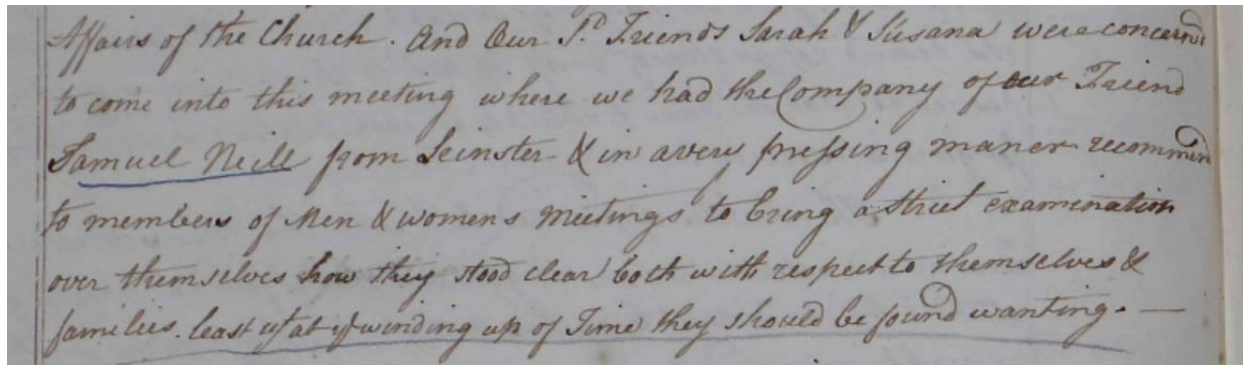 Affairs of the Church. And Our Sd. Friends Sarah & Susana were concernd
to come into this meeting where we had the Company of our Friend
Samuel Neill from Leinster & in a very pressing maner recommend
to members of Men & womens Meetings to bring a strict examination
over themselves how they stood clear both with respect to themselves &
families. least yt at ye winding up of Time they should be found wanting. —